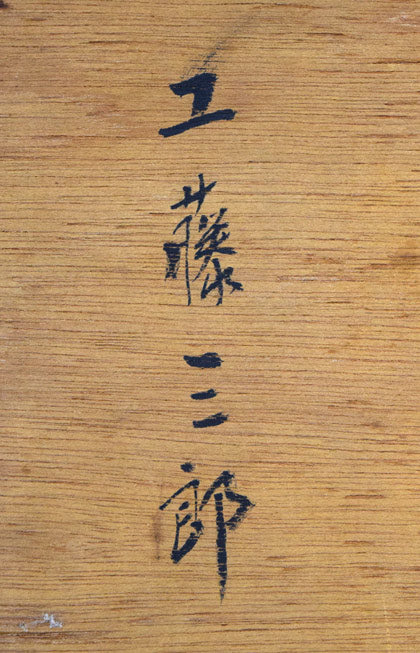 工藤三郎